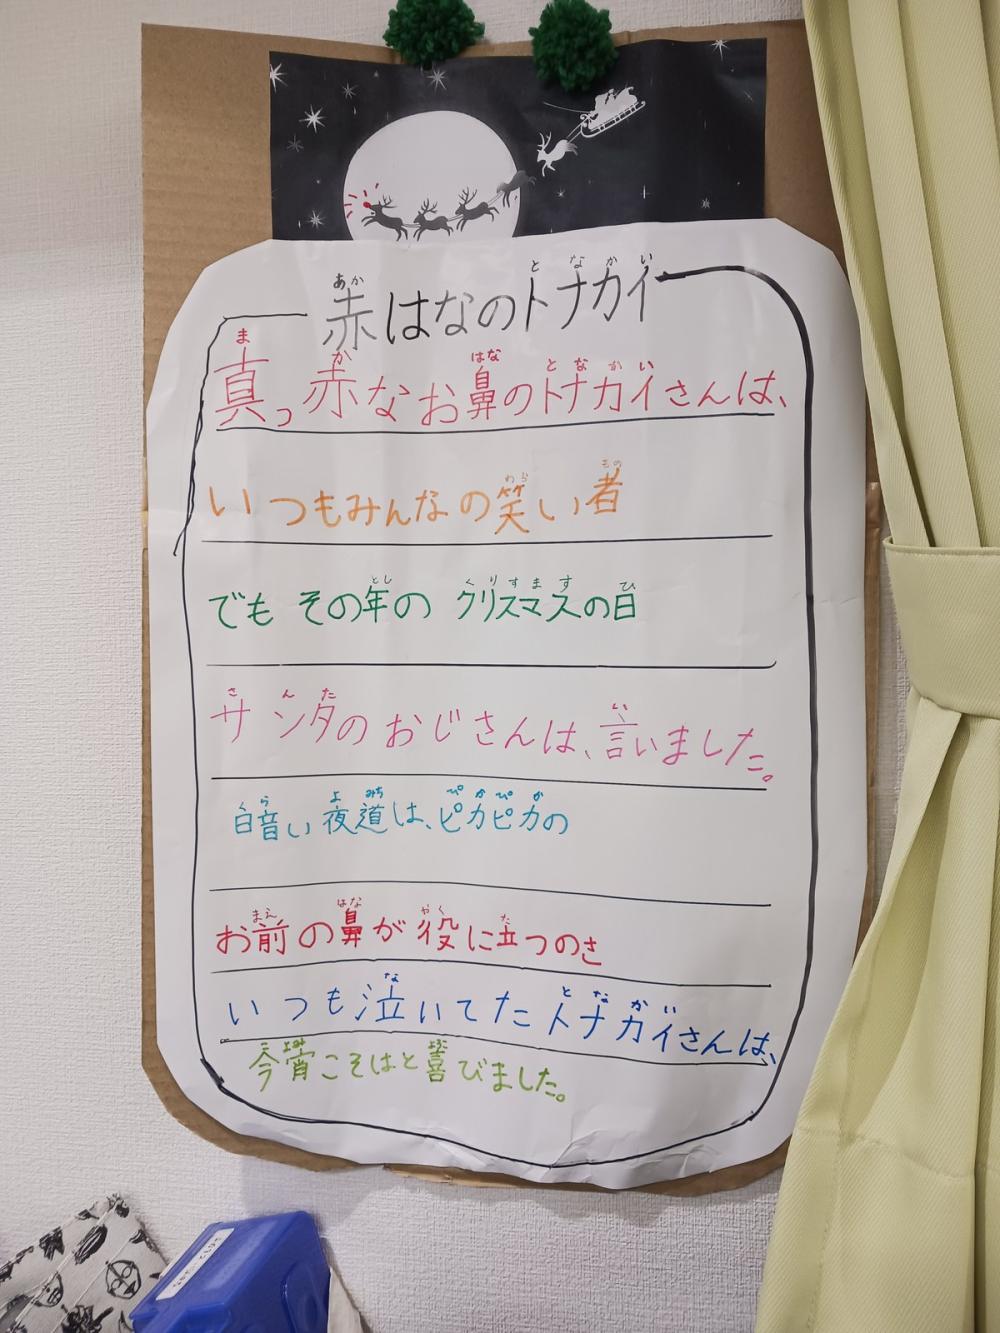 赤はなのトナカイ
真っ赤なお鼻のトナカイさんは、
いつもみんなの笑い者
でも その年の クリスマスの日
サンタのおじさんは、言いました。
暗い夜道は、ピカピカの
お前の鼻が役に立つのさ
いつも泣いてたトナカイさんは、
今宵こそはと喜びました。